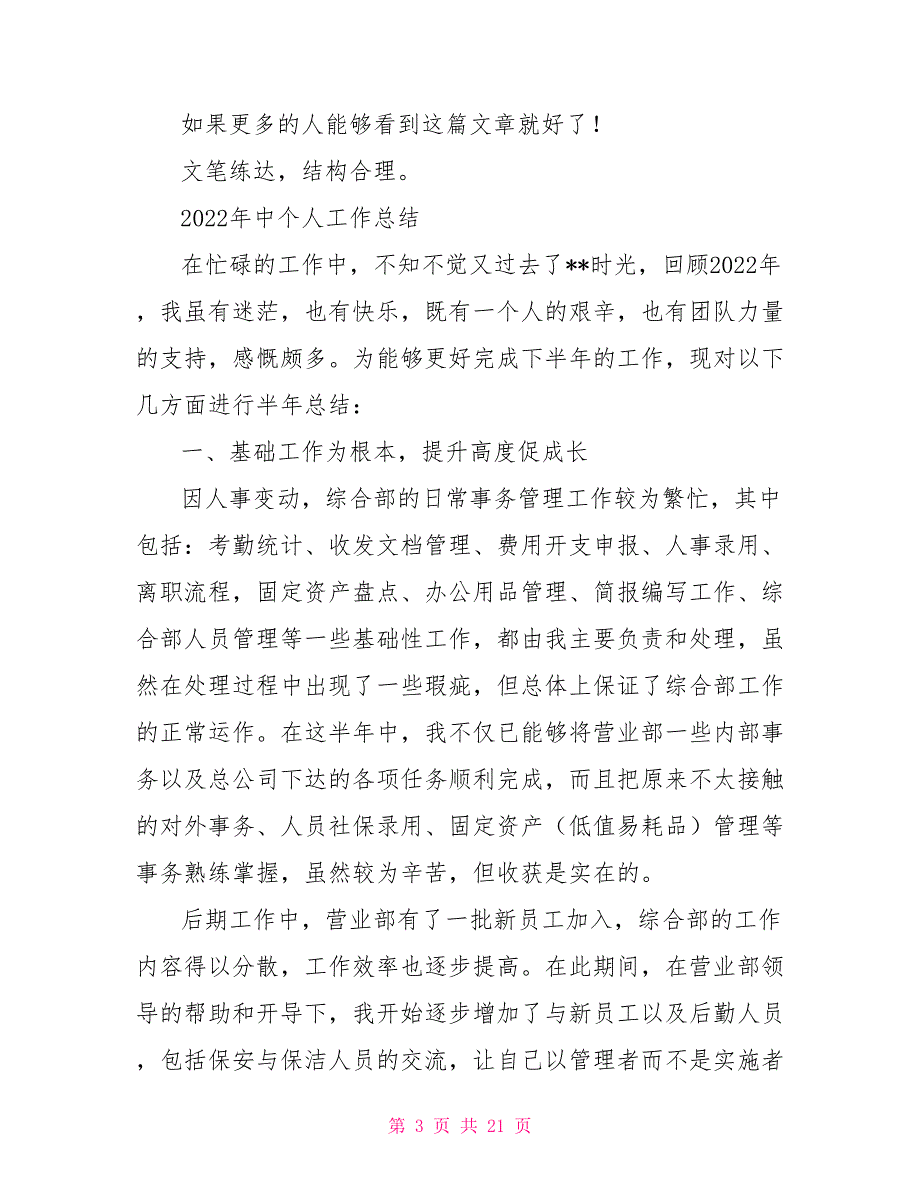 如果更多的人能够看到这篇文章就好了！
文笔练达，结构合理。
2022年中个人工作总结
在忙碌的工作中，不知不觉又过去了**时光，回顾2022年
，我虽有迷茫，也有快乐，既有一个人的艰辛，也有团队力量
的支持，感慨颇多。为能够更好完成下半年的工作，现对以下
几方面进行半年总结：
一、基础工作为根本，提升高度促成长
因人事变动，综合部的日常事务管理工作较为繁忙，其中
包括：考勤统计、收发文档管理、费用开支申报、人事录用、
离职流程，固定资产盘点、办公用品管理、简报编写工作、综
合部人员管理等一些基础性工作，都由我主要负责和处理，虽
然在处理过程中出现了一些瑕疵，但总体上保证了综合部工作
的正常运作。在这半年中，我不仅已能够将营业部一些内部事
务以及总公司下达的各项任务顺利完成，而且把原来不太接触
的对外事务、人员社保录用、固定资产（低值易耗品）管理等
事务熟练掌握，虽然较为辛苦，但收获是实在的。
后期工作中，营业部有了一批新员工加入，综合部的工作
内容得以分散，工作效率也逐步提高。在此期间，在营业部领
导的帮助和开导下，我开始逐步增加了与新员工以及后勤人员
，包括保安与保洁人员的交流，让自己以管理者而不是实施者
第 3 页 共 21 页